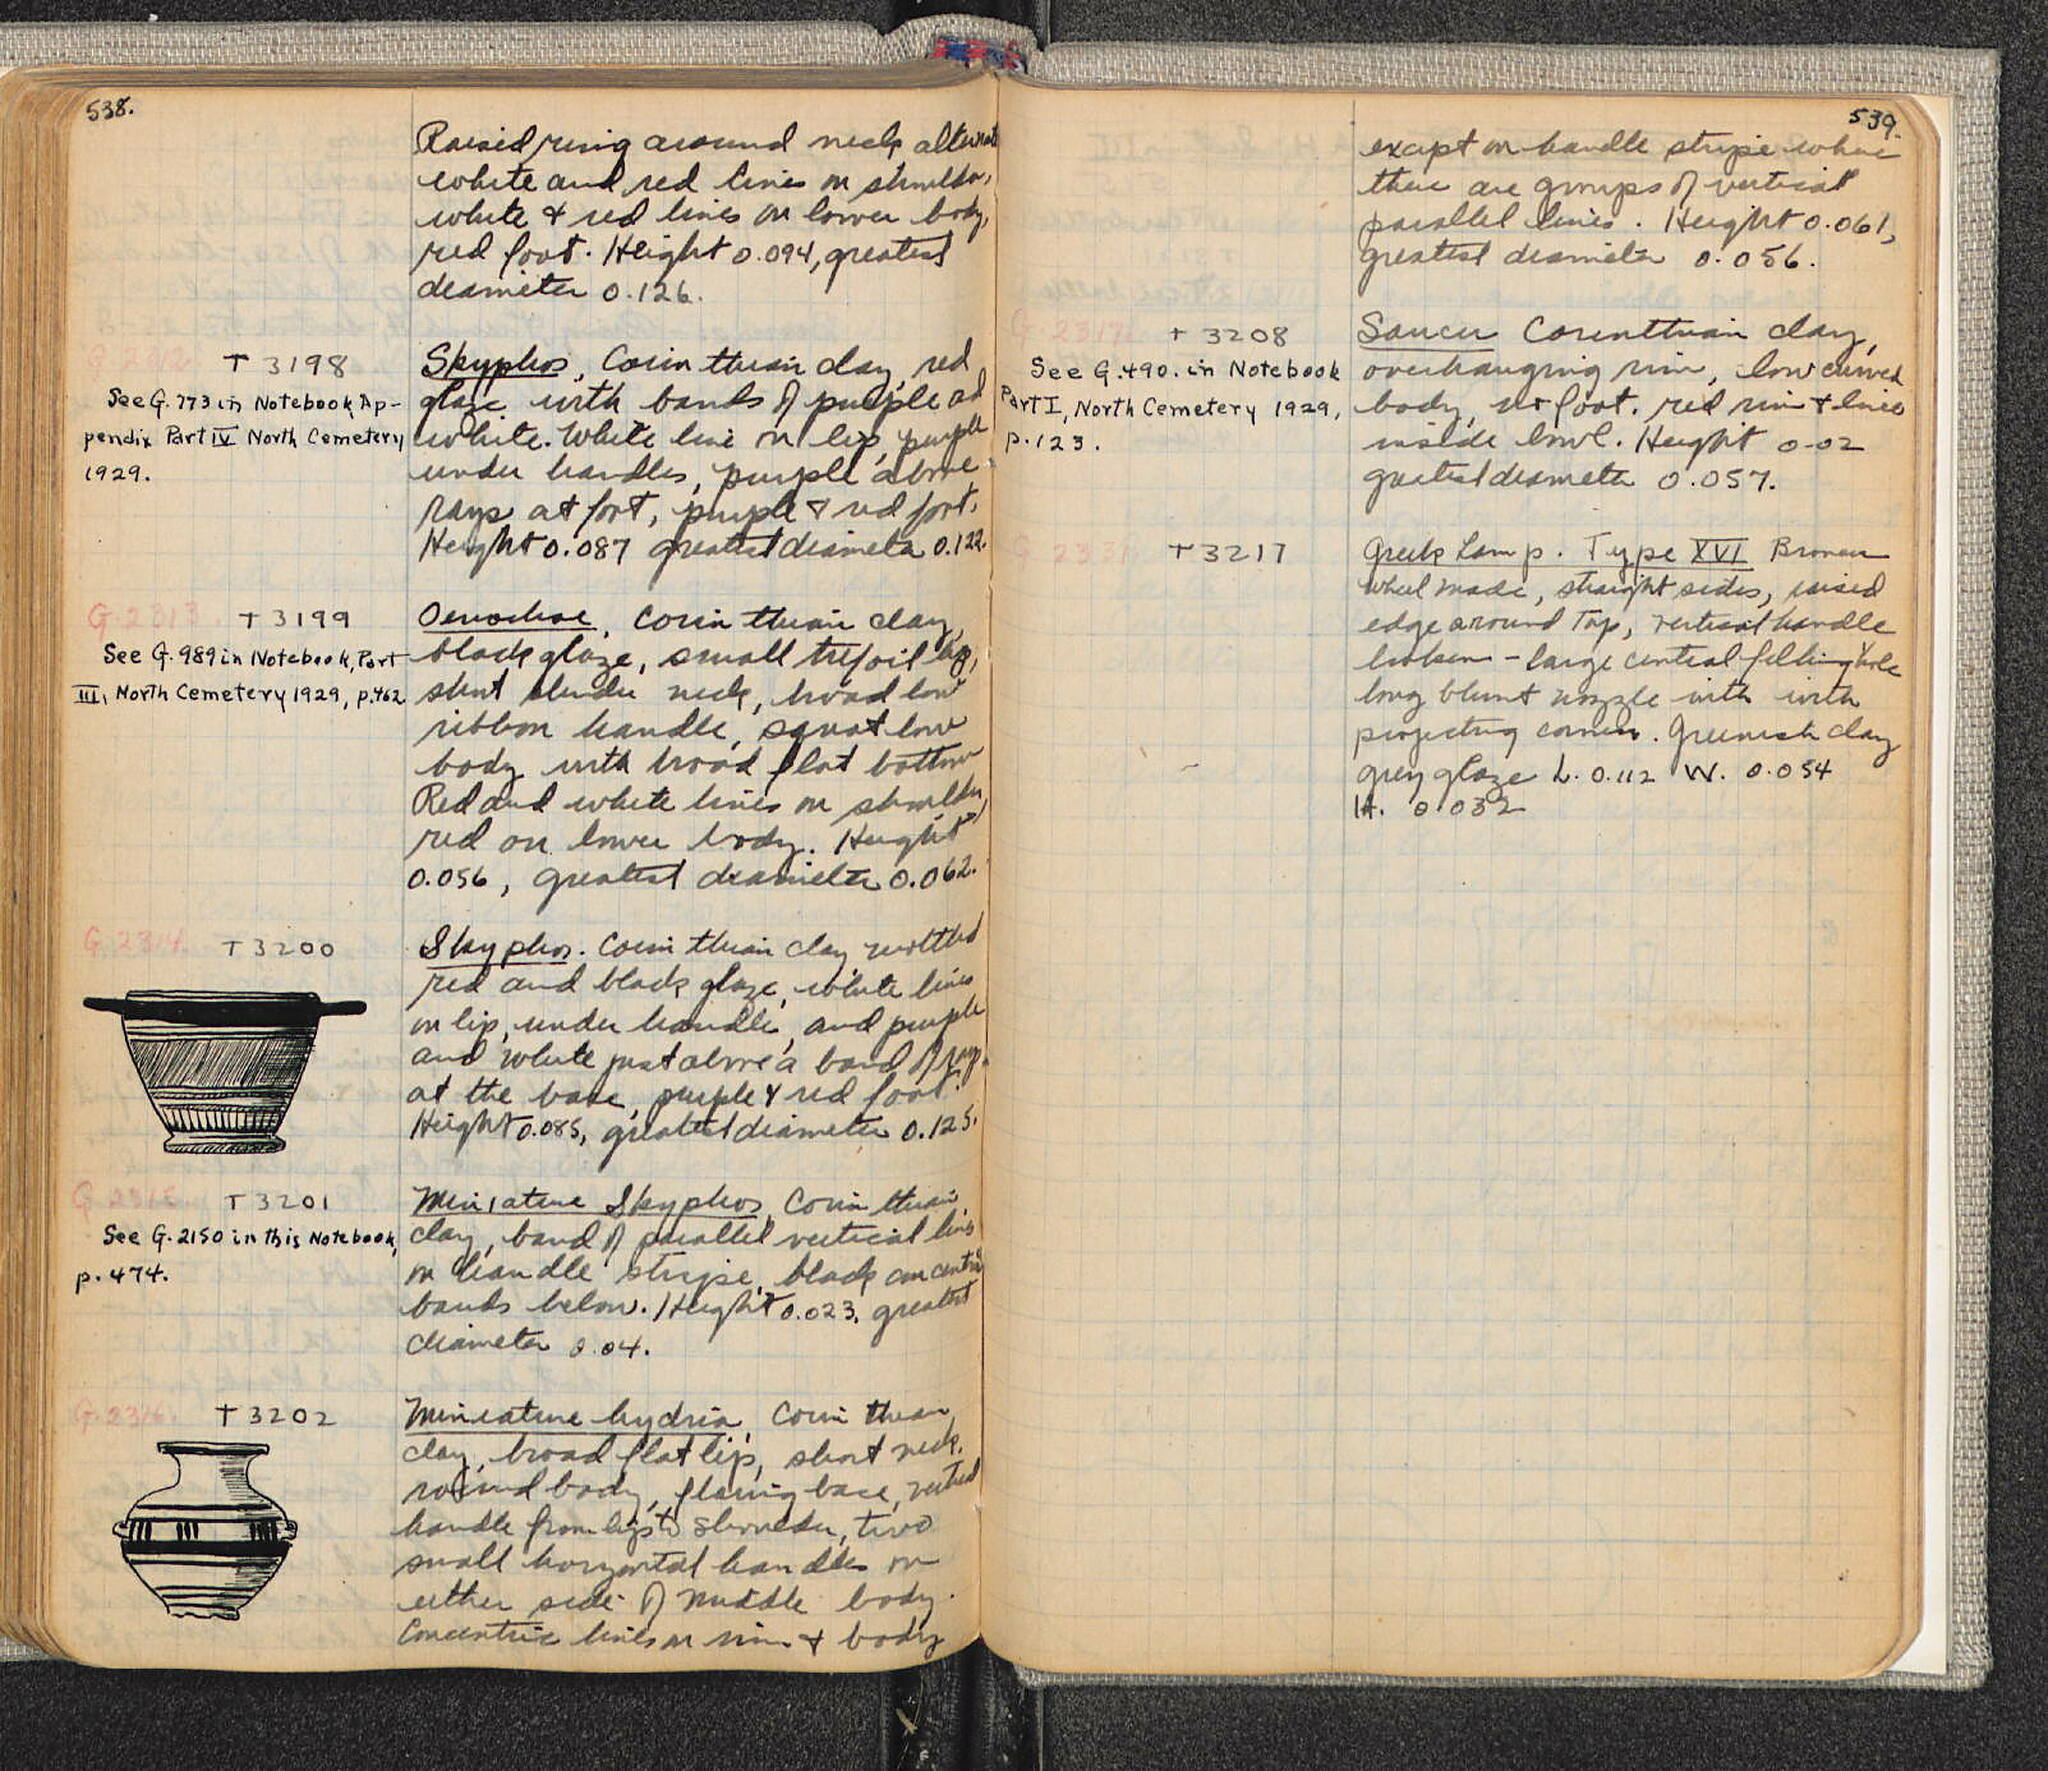 538.
Raised ring around neck alternate
white and red lines on shoulder,
white & red lines on lower body,
red foot. Height 0.094, greatest
diameter 0.126.
G.2312. T 3198
See G.773 in Notebook Ap-
pendix Part IV North Cemetery
1929.
Skyphos, Corinthian clay, red
glaze with bands of purple and
white. White line on lip, purple
under handles, purple above
rays at foot, purple & red foot.
Height 0.087 greatest diameter 0.122.
G.2313. T 3199
See G.989 in Notebook, Part
III, North Cemetery 1929, p.462
Oenochoe, Corinthian clay,
black glaze, small trefoil lip,
short slender neck, broad low
ribbon handle, squat low
body with broad flat bottom
Red and white lines on shoulder,
red on lower body. Height
0.056, greatest diameter 0.062.
G.2314. T 3200
Skyphos. Corinthian clay mottled
red and black glaze, white lines
on lip, under handle, and purple
and white just above a band of rays
at the base, purple & red foot.
Height 0.085, greatest diameter 0.125.
G.2315. T 3201
See G.2150 in this Notebook,
p.474.
Miniature Skyphos, Corinthian
clay, band of parallel vertical lines
on handle stripe, black concentric
bands below. Height 0.023, greatest
diameter 0.04.
G.2316. T 3202
Miniature hydria, Corinthian
clay, broad flat lip, short neck,
round body, flaring base, vertical
handle from lip to shoulder, two
small horizontal handles on
either side of middle body.
Concentric lines on rim & body
539.
except on handle stripe where
there are groups of vertical
parallel lines. Height 0.061,
greatest diameter 0.056.
G.2317. T 3208
See G.490. in Notebook
Part I, North Cemetery 1929,
p.123.
Saucer Corinthian clay,
overhanging rim, low curved
body, no foot. red rim & lines
inside bowl. Height 0.02
greatest diameter 0.057.
G 2331. T 3217
Greek Lamp. Type XVI Broneer
Wheel made, straight sides, raised
edge around top, vertical handle
broken - large central filling hole
long blunt nozzle with with
projecting corners. Greenish clay
grey glaze L. 0.112 W. 0.054
H. 0.032